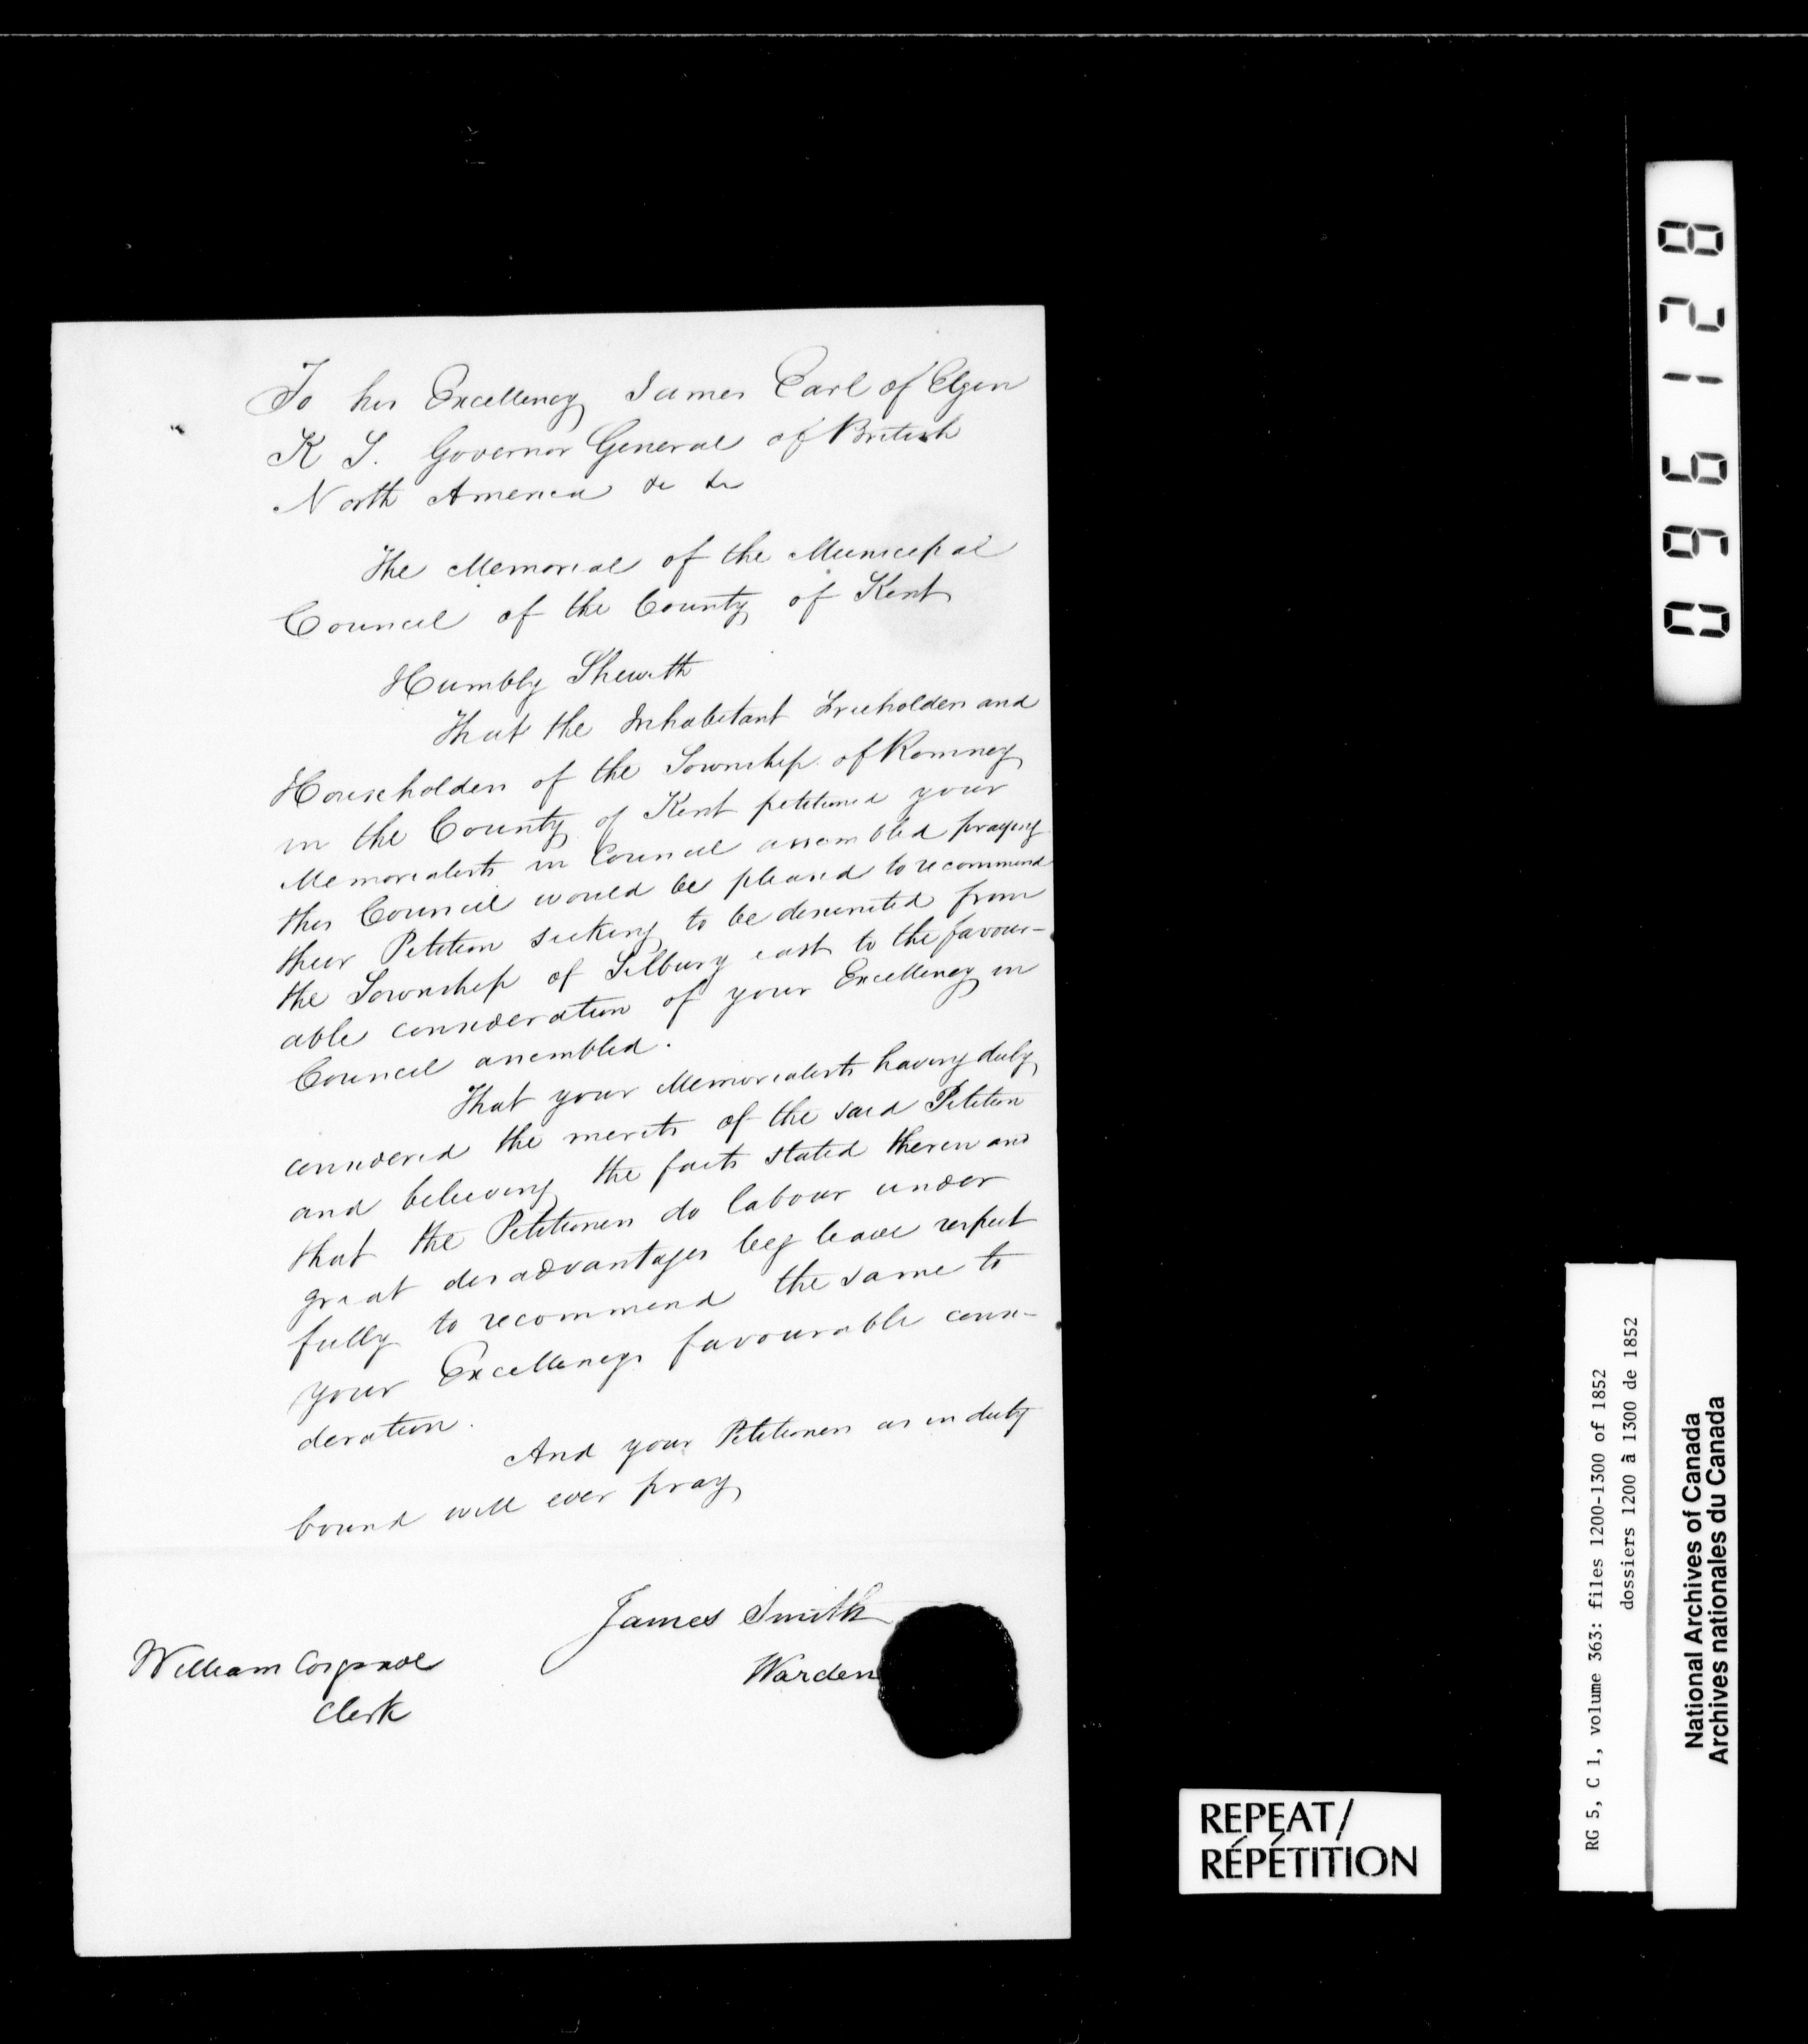 To his Excellency James Earl of Elgin
K T. Governor General of British
North America &c &c
The Memorial of the Municipal
Council of the County of Kent
Humbly Sheweth
That the Inhabitant Freeholders and
Householders of the Township of Romney
in the County of Kent petitioned your
Memorialists in Council assembled praying
this Council would be pleased to recommend
their Petition seeking to be disunited from
the Township of Tilbury east to the favour-
able consideration of your Excellency in
Council assembled.
That your Memorialists having duly
considered the merits of the said Petition
and believing the facts stated therein and
that the Petitioners do labour under
great disadvantages beg leave respect
fully to recommend the same to
your Excellencys favourable consi-
deration.
And your Petitioners as in duty
bound will ever pray
James Smith
Warden
William
Clerk
096128
RG 5, C 1, volume 363: files 1200-1300 of 1852
dossiers 1200 à 1300 de 1852
National Archives of Canada
Archives nationales du Canada
REPEAT/
RÉPÉTITION